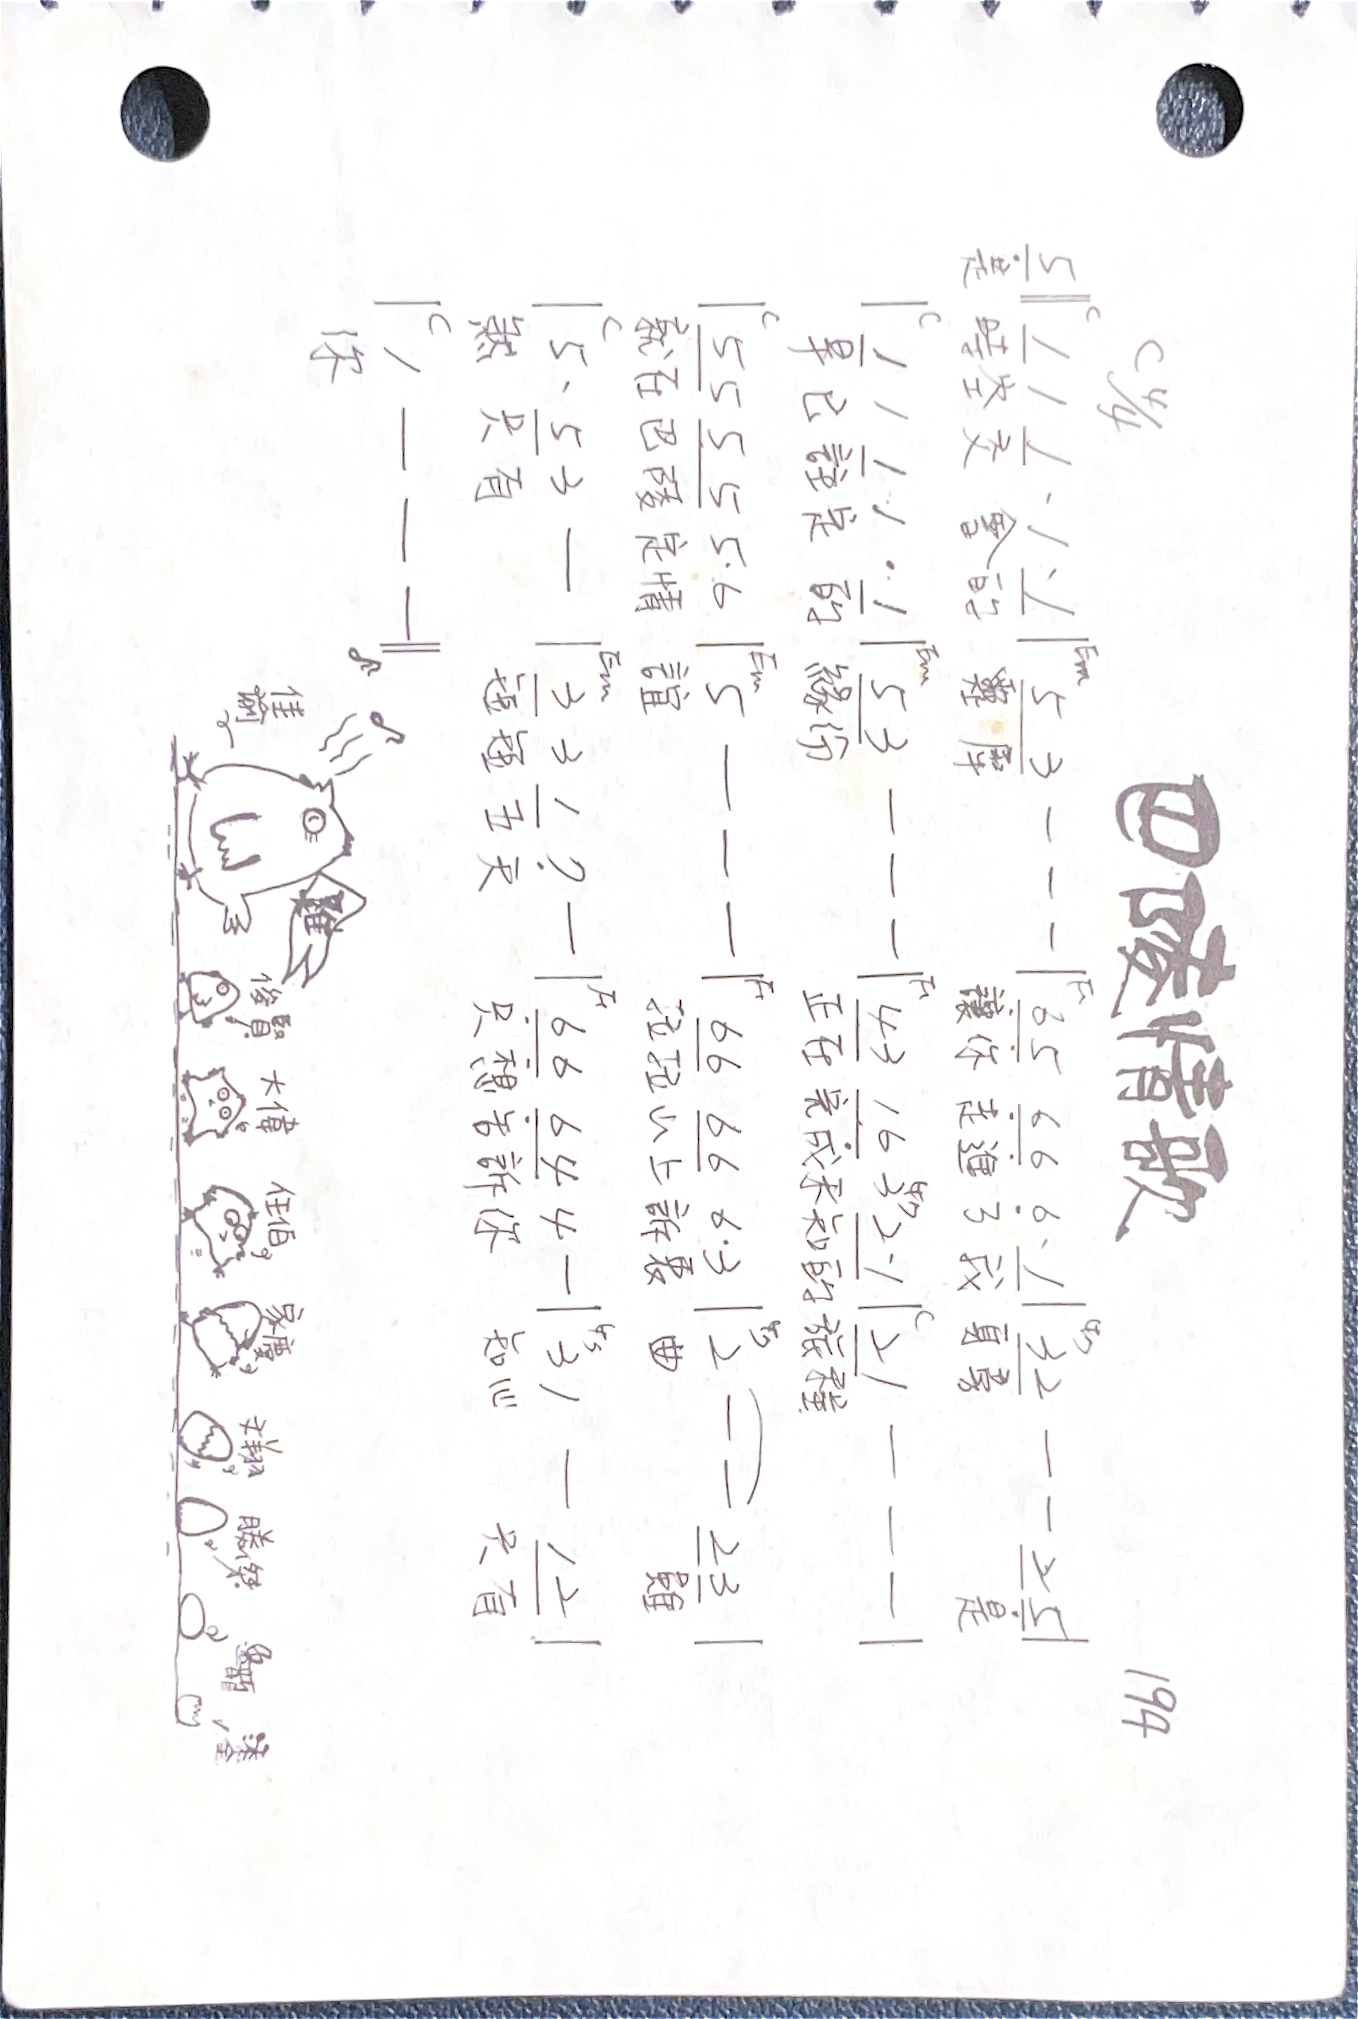 巴陵情歌
C 4/4
194
C Em F G7
5 ‖ 1 1 1 · 1 · 1 | 5 3 — — — | 6 5 6 6 6 · 1 | 3 2 — — 2 5 |
是 時空交 會的 靈犀 讓你 走進了我 身旁 是
C Em F G7 C
| 1 1 1 1 · 1 | 5 3 — — — | 4 3 1 6 3 2 · 1 | 2 1 — — — |
早已註定 的 緣份 正在完成未知的旅程
C Em F G7
| 5 5 5 5 5 · 6 | 5 — — — | 6 6 6 6 6 · 3 | 2 — — 2 3 |
就在巴陵定情 誼 拉拉山上訴衷 曲 雖
C Em F G7
| 5 · 5 3 — | 3 3 1 7 — | 6 6 6 4 4 — | 3 1 — 1 2 |
然 只有 短短五天 只想告訴你 知心 只有
C
| 1 — — — ‖
你
雞
佳瑜 俊賢 大偉 任伯 家慶 文翔 勝傑